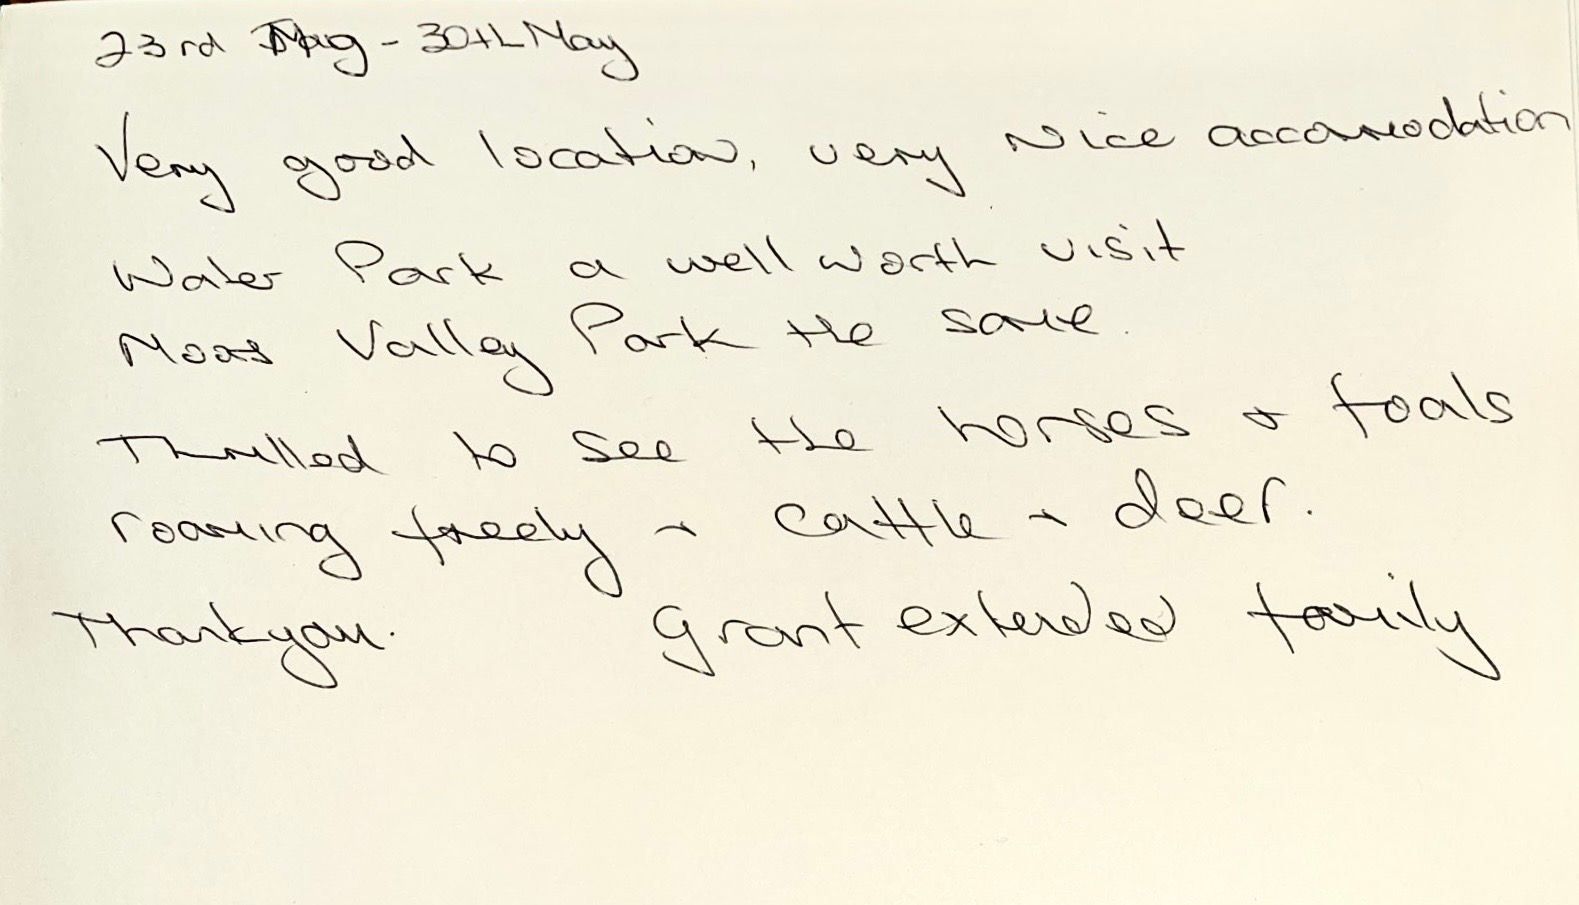 23rd May - 30th May
Very good location, very nice accomodation
Water Park a well worth visit
Moors Valley Park the same.
Thrilled to see the horses & foals
roaming freely & cattle & deer.
Thankyou. Grant extended family